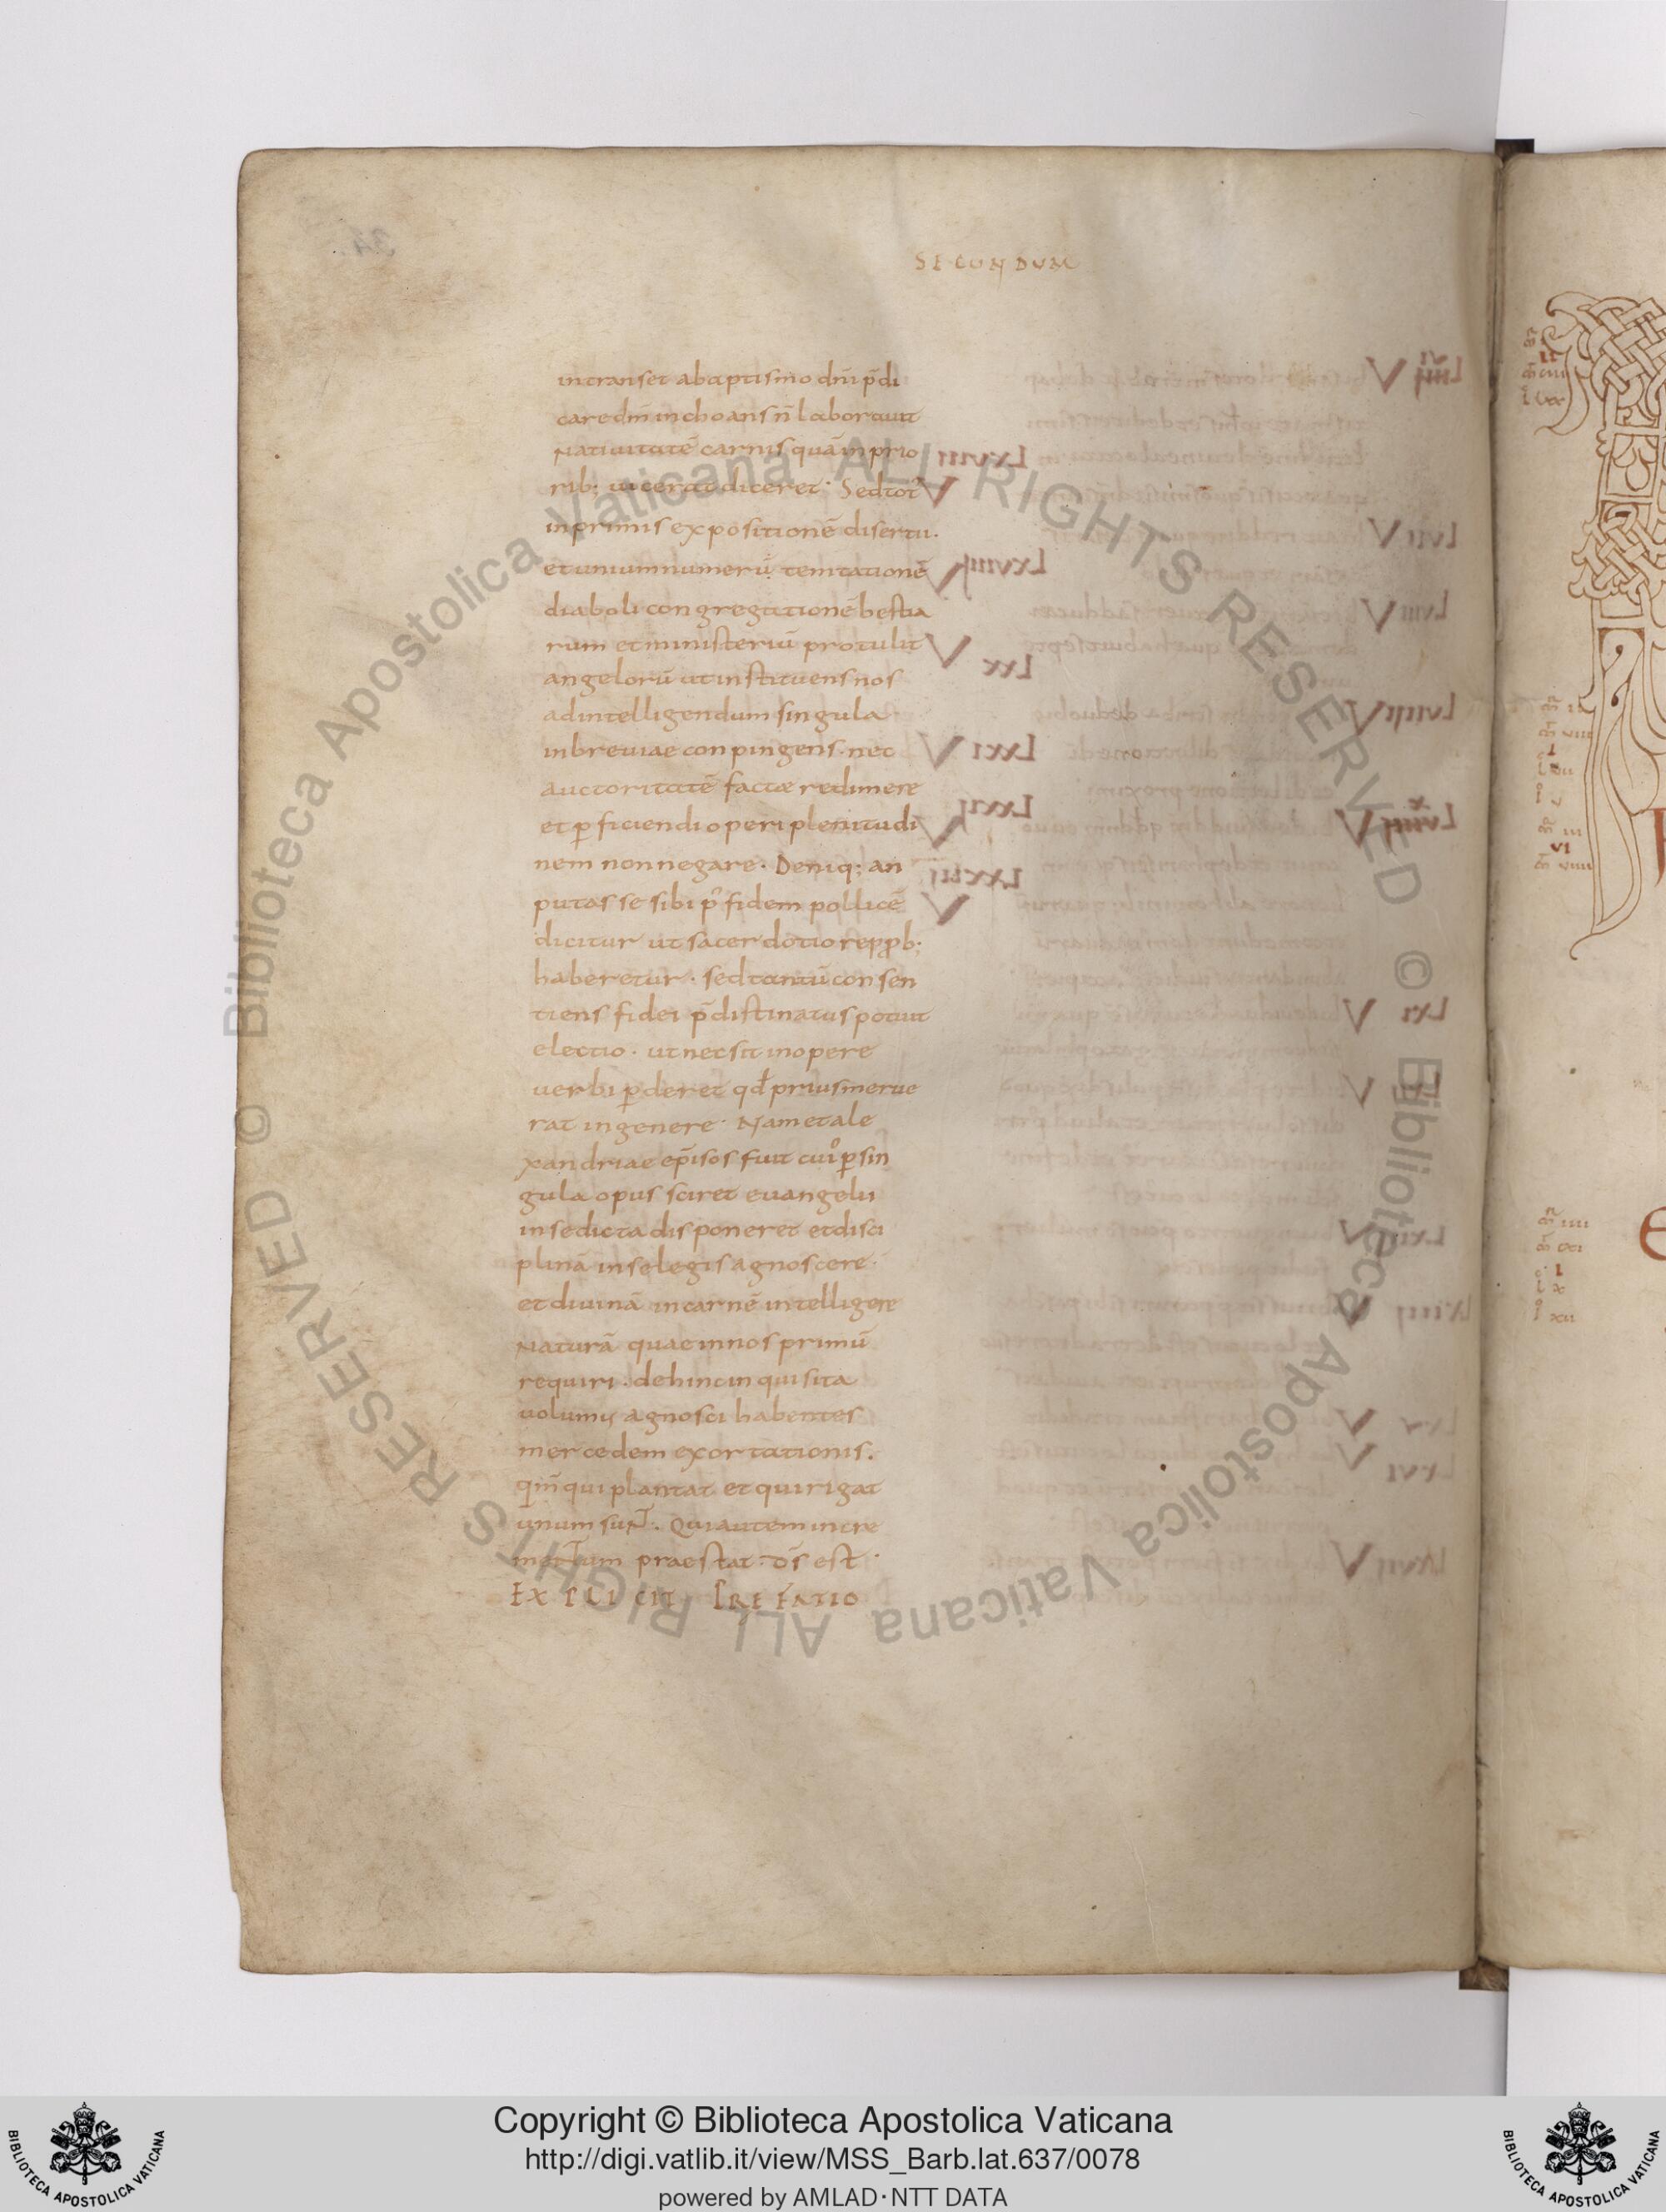 SECUNDUM
intranset abaptismo dn̄i p̄di
care dm̄ inchoans n̄ laborauit
Natiuitatē carnis quā in prio
rib; uicerat diceret · Sed tot'
inprimis expositionē disertu.
et uniumnumerū temtationē
diaboli congregationē bestia
rum et ministeriū protulit
angelorū ut instituens nos
adintelligendum singula
inbreuiae conpingens · nec
auctoritatē factae redimere
et ꝑficiendi operi plenitudi
nem nonnegare · Deniq; an
putasse sibi p̊ fidem pollicē
dicitur ut sacerdotio repꝓb;
haberetur · sed tantū consen
tiens fidei p̄distinatus potuit
electio · ut nec sit inopere
uerbi ꝑderet qd̄ prius merue
rat ingenere · Nam et ale
xandriae ep̄isos fuit cui' ꝑ sin
gula opus sciret euangelii
in se dicta disponeret et disci
plinā in se legis agnoscere ·
et diuinā in carnē intelligere
Naturā quae in nos primū
requiri · dehinc inquisita
uolumus agnosci habentes
mercedem exortationis .
qm̄ qui plantat et qui rigat
unum sunt · Qui autem incre
mentum praestat · ds̄ est ·
EXPLICIT PREFATIO
Copyright © Biblioteca Apostolica Vaticana
http://digi.vatlib.it/view/MSS_Barb.lat.637/0078
powered by AMLAD · NTT DATA
BIBLIOTECA APOSTOLICA VATICANA
BIBLIOTECA APOSTOLICA VATICANA
© Biblioteca Apostolica Vaticana ALL RIGHTS RESERVED © Biblioteca Apostolica Vaticana ALL RIGHTS RESERVED